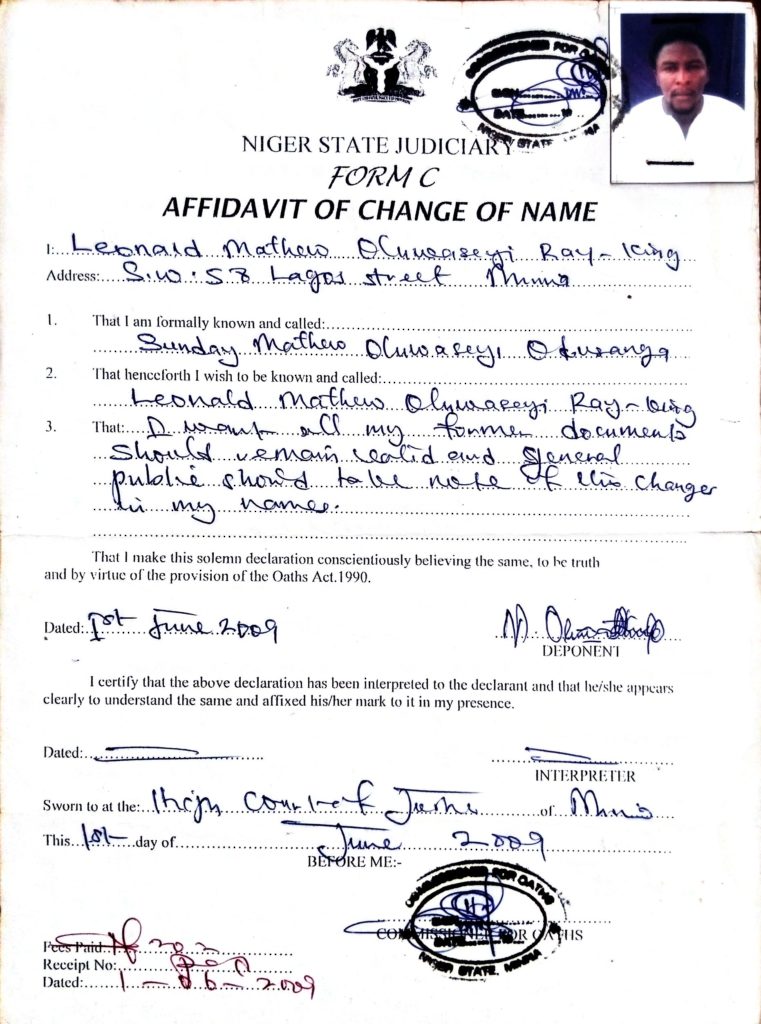 COMMISSIONER FOR OATHS
SIGN
DATE
NIGER STATE MINNA
NIGER STATE JUDICIARY
FORM C
AFFIDAVIT OF CHANGE OF NAME
I: Leonald Mathew Oluwaseyi Ray-King
Address: S.W. 58 Lagos street Minna
1. That I am formally known and called:
Sunday Mathew Oluwaseyi Okusanga
2. That henceforth I wish to be known and called:
Leonald Mathew Oluwaseyi Ray-King
3. That: I want all my former documents
should remain valid and general
public should take note of this changes
in my names.
That I make this solemn declaration conscientiously believing the same, to be truth
and by virtue of the provision of the Oaths Act.1990.
Dated: 1st June 2009
DEPONENT
I certify that the above declaration has been interpreted to the declarant and that he/she appears
clearly to understand the same and affixed his/her mark to it in my presence.
Dated:
INTERPRETER
Sworn to at the: High Court of Justice of Minna
This 1st day of June 2009
BEFORE ME:-
COMMISSIONER FOR OATHS
SIGN
DATE
COMMISSIONER FOR OATHS
NIGER STATE, MINNA
Fees Paid:
Receipt No:
Dated: 1-06-2009